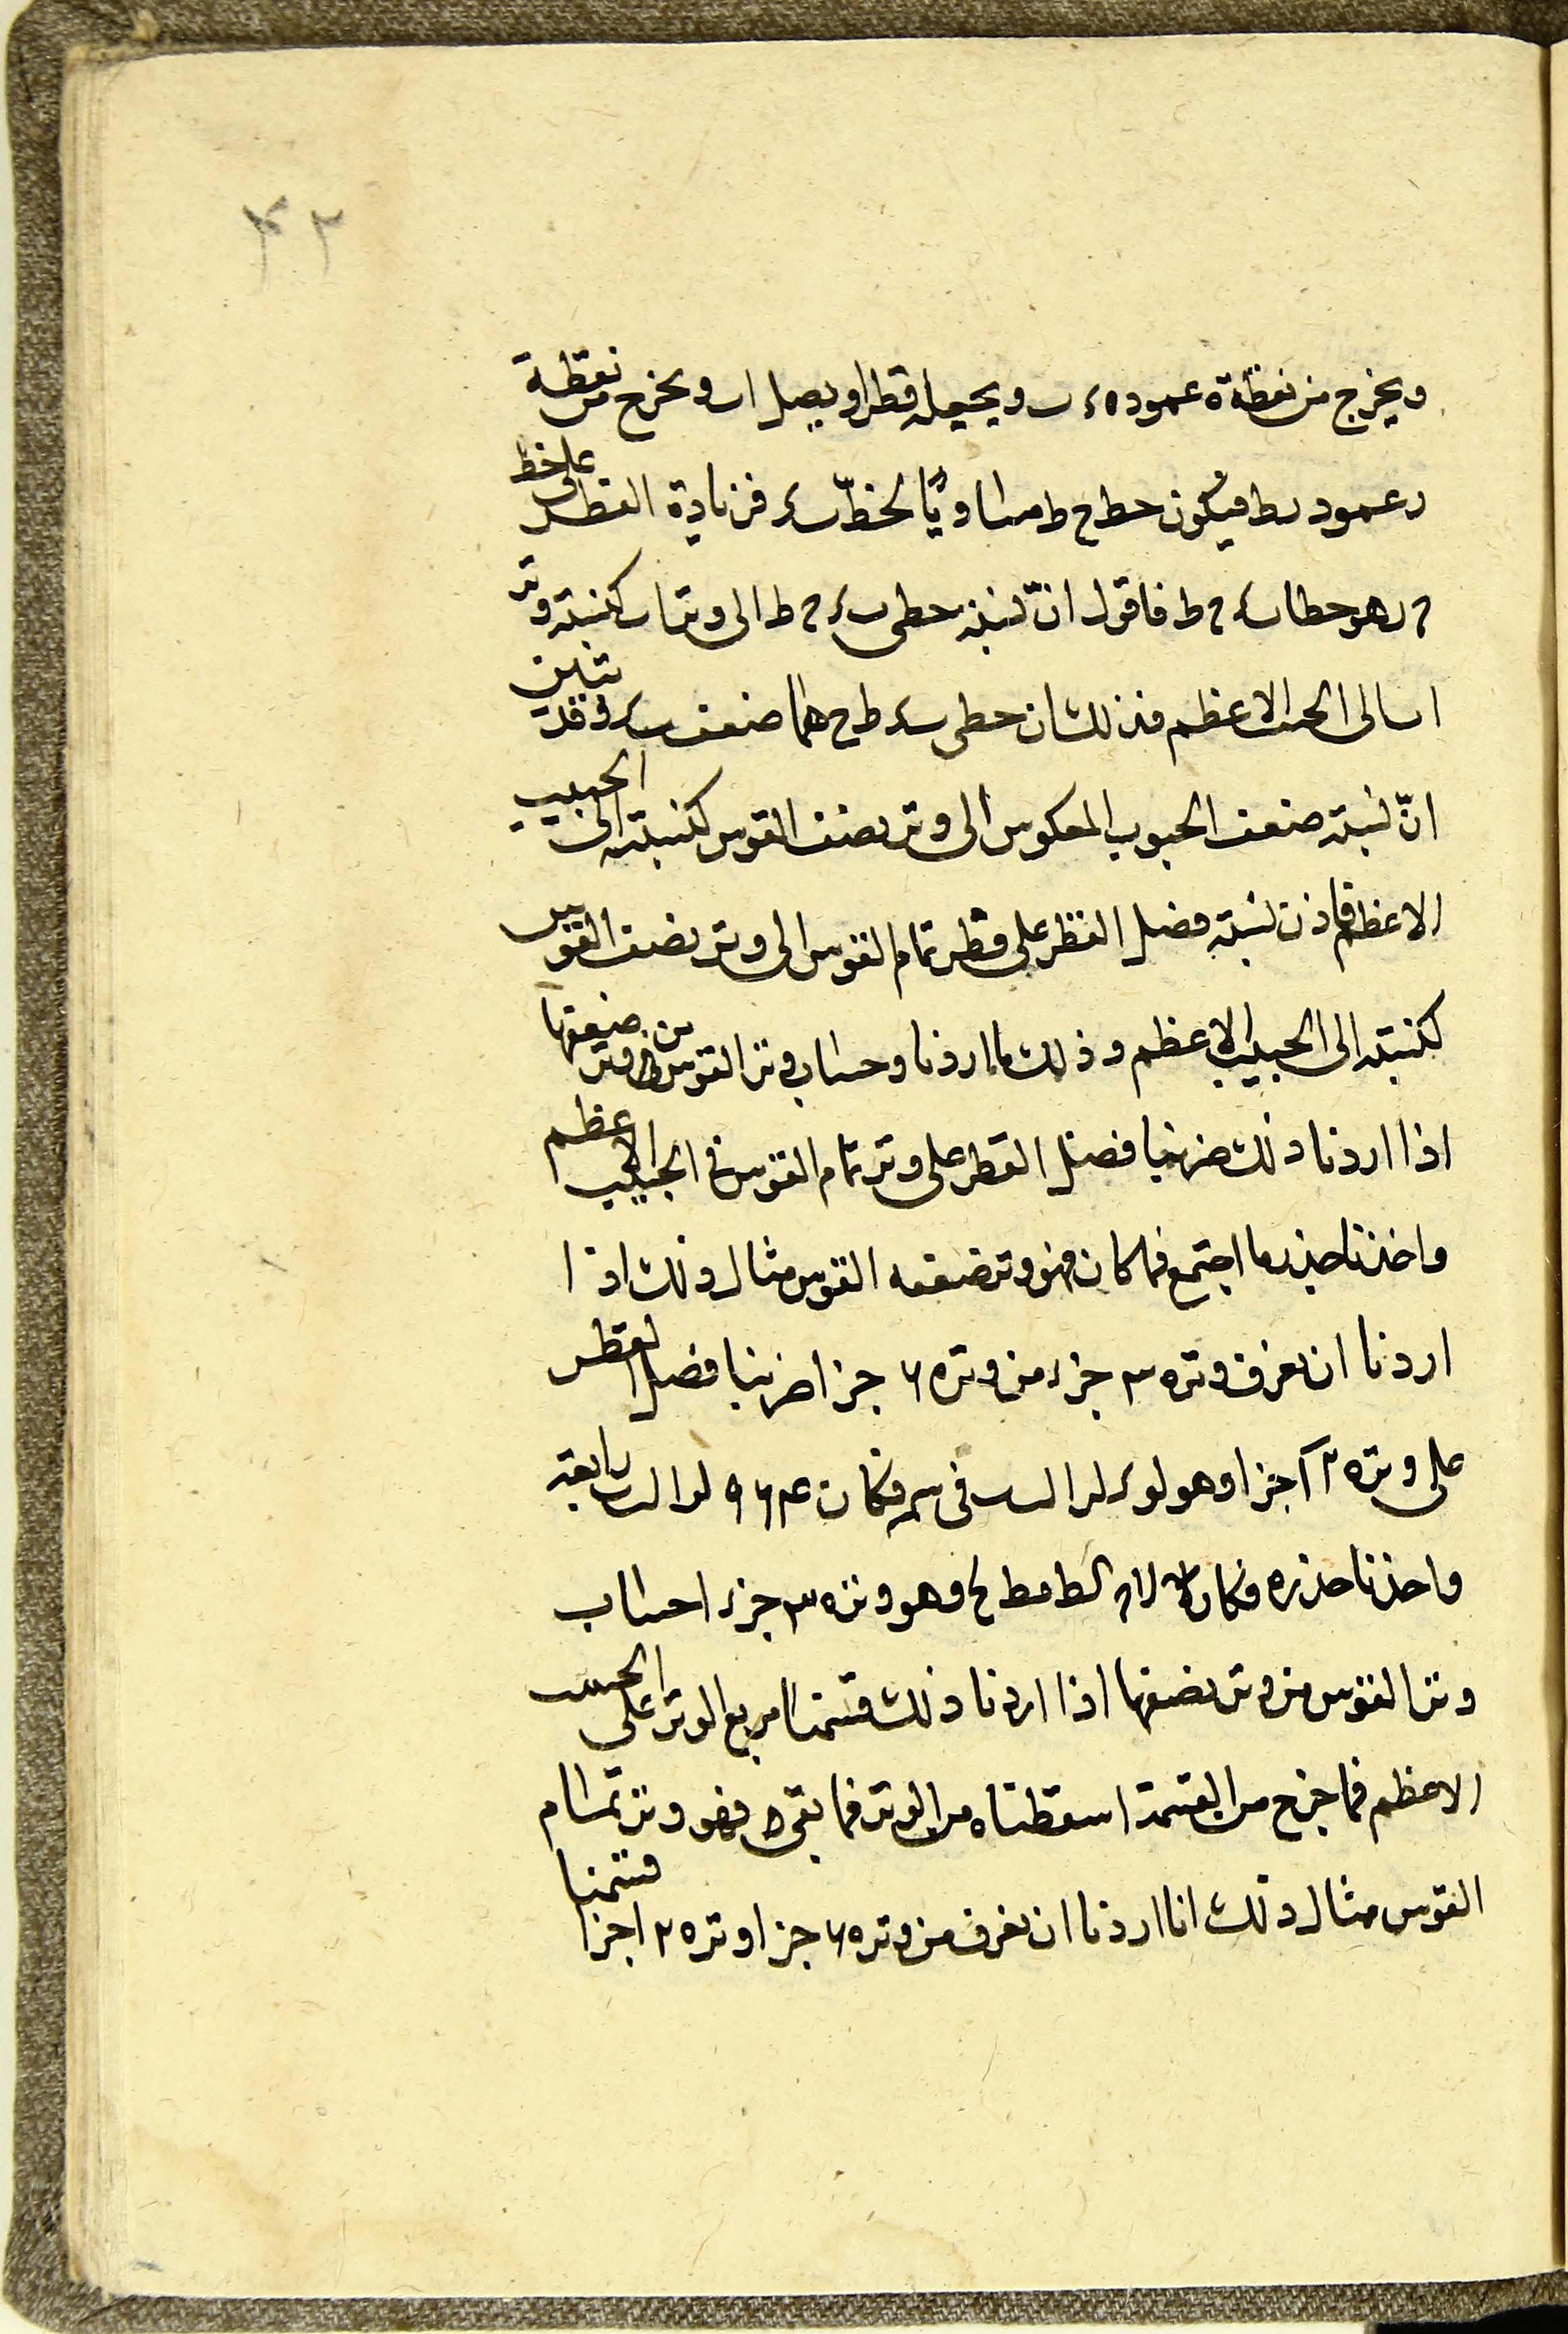 ۴۲
ويخرج من نقطة ه عمود ه ء ب ويجعله قطرا ويصل اب ويخرج من نقطة
ر عمود رط فيكون خط ح ط مساويًا لخطّ ب ء فزيادة القطر على خط
ح ر هو خطا ب ء ح ط فاقول انّ نسبة خطى ب ء ح ط الى وتر اب كنسبة وتر
اب الى الجيب الاعظم فذلك ان خطى ب ء ط ح هما ضعف ب ء وقد تبين
انّ نسبة ضعف الجيوب المعكوس الى وتر نصف القوس كنسبته الى الجيب
الاعظم فاذن نسبة فضل القطر على قطر تمام القوس الى وتر نصف القوس
كنسبته الى الجيب الاعظم وذلك ما اردنا وحساب وتر القوس من وتر ضعفها
اذا اردنا ذلك ضربنا فضل القطر على وتر تمام القوس فى الجيب الاعظم
واخذنا جذر ما اجتمع فما كان فهو وتر ضعفه القوس مثال ذلك اذا
اردنا ان نعرف وتره ٣ جزء من وتره ٦ جزا ضربنا فضل القطر
على وتره ١٢ جزا وهو فى فكان رابعة
واخذنا جذره فكان وهو وتره ٣ جزء احساب
وتر القوس من وتر نصفها اذا اردنا ذلك قسمنا مربع الوتر على الجيب
الاعظم فما خرج من القسمة اسقطناه من الوتر فما بقى فهو وتر تمام
القوس مثال ذلك انا اردنا ان نعرف من وتره ٦ جزا وتره ١٢ جزا قسمنا